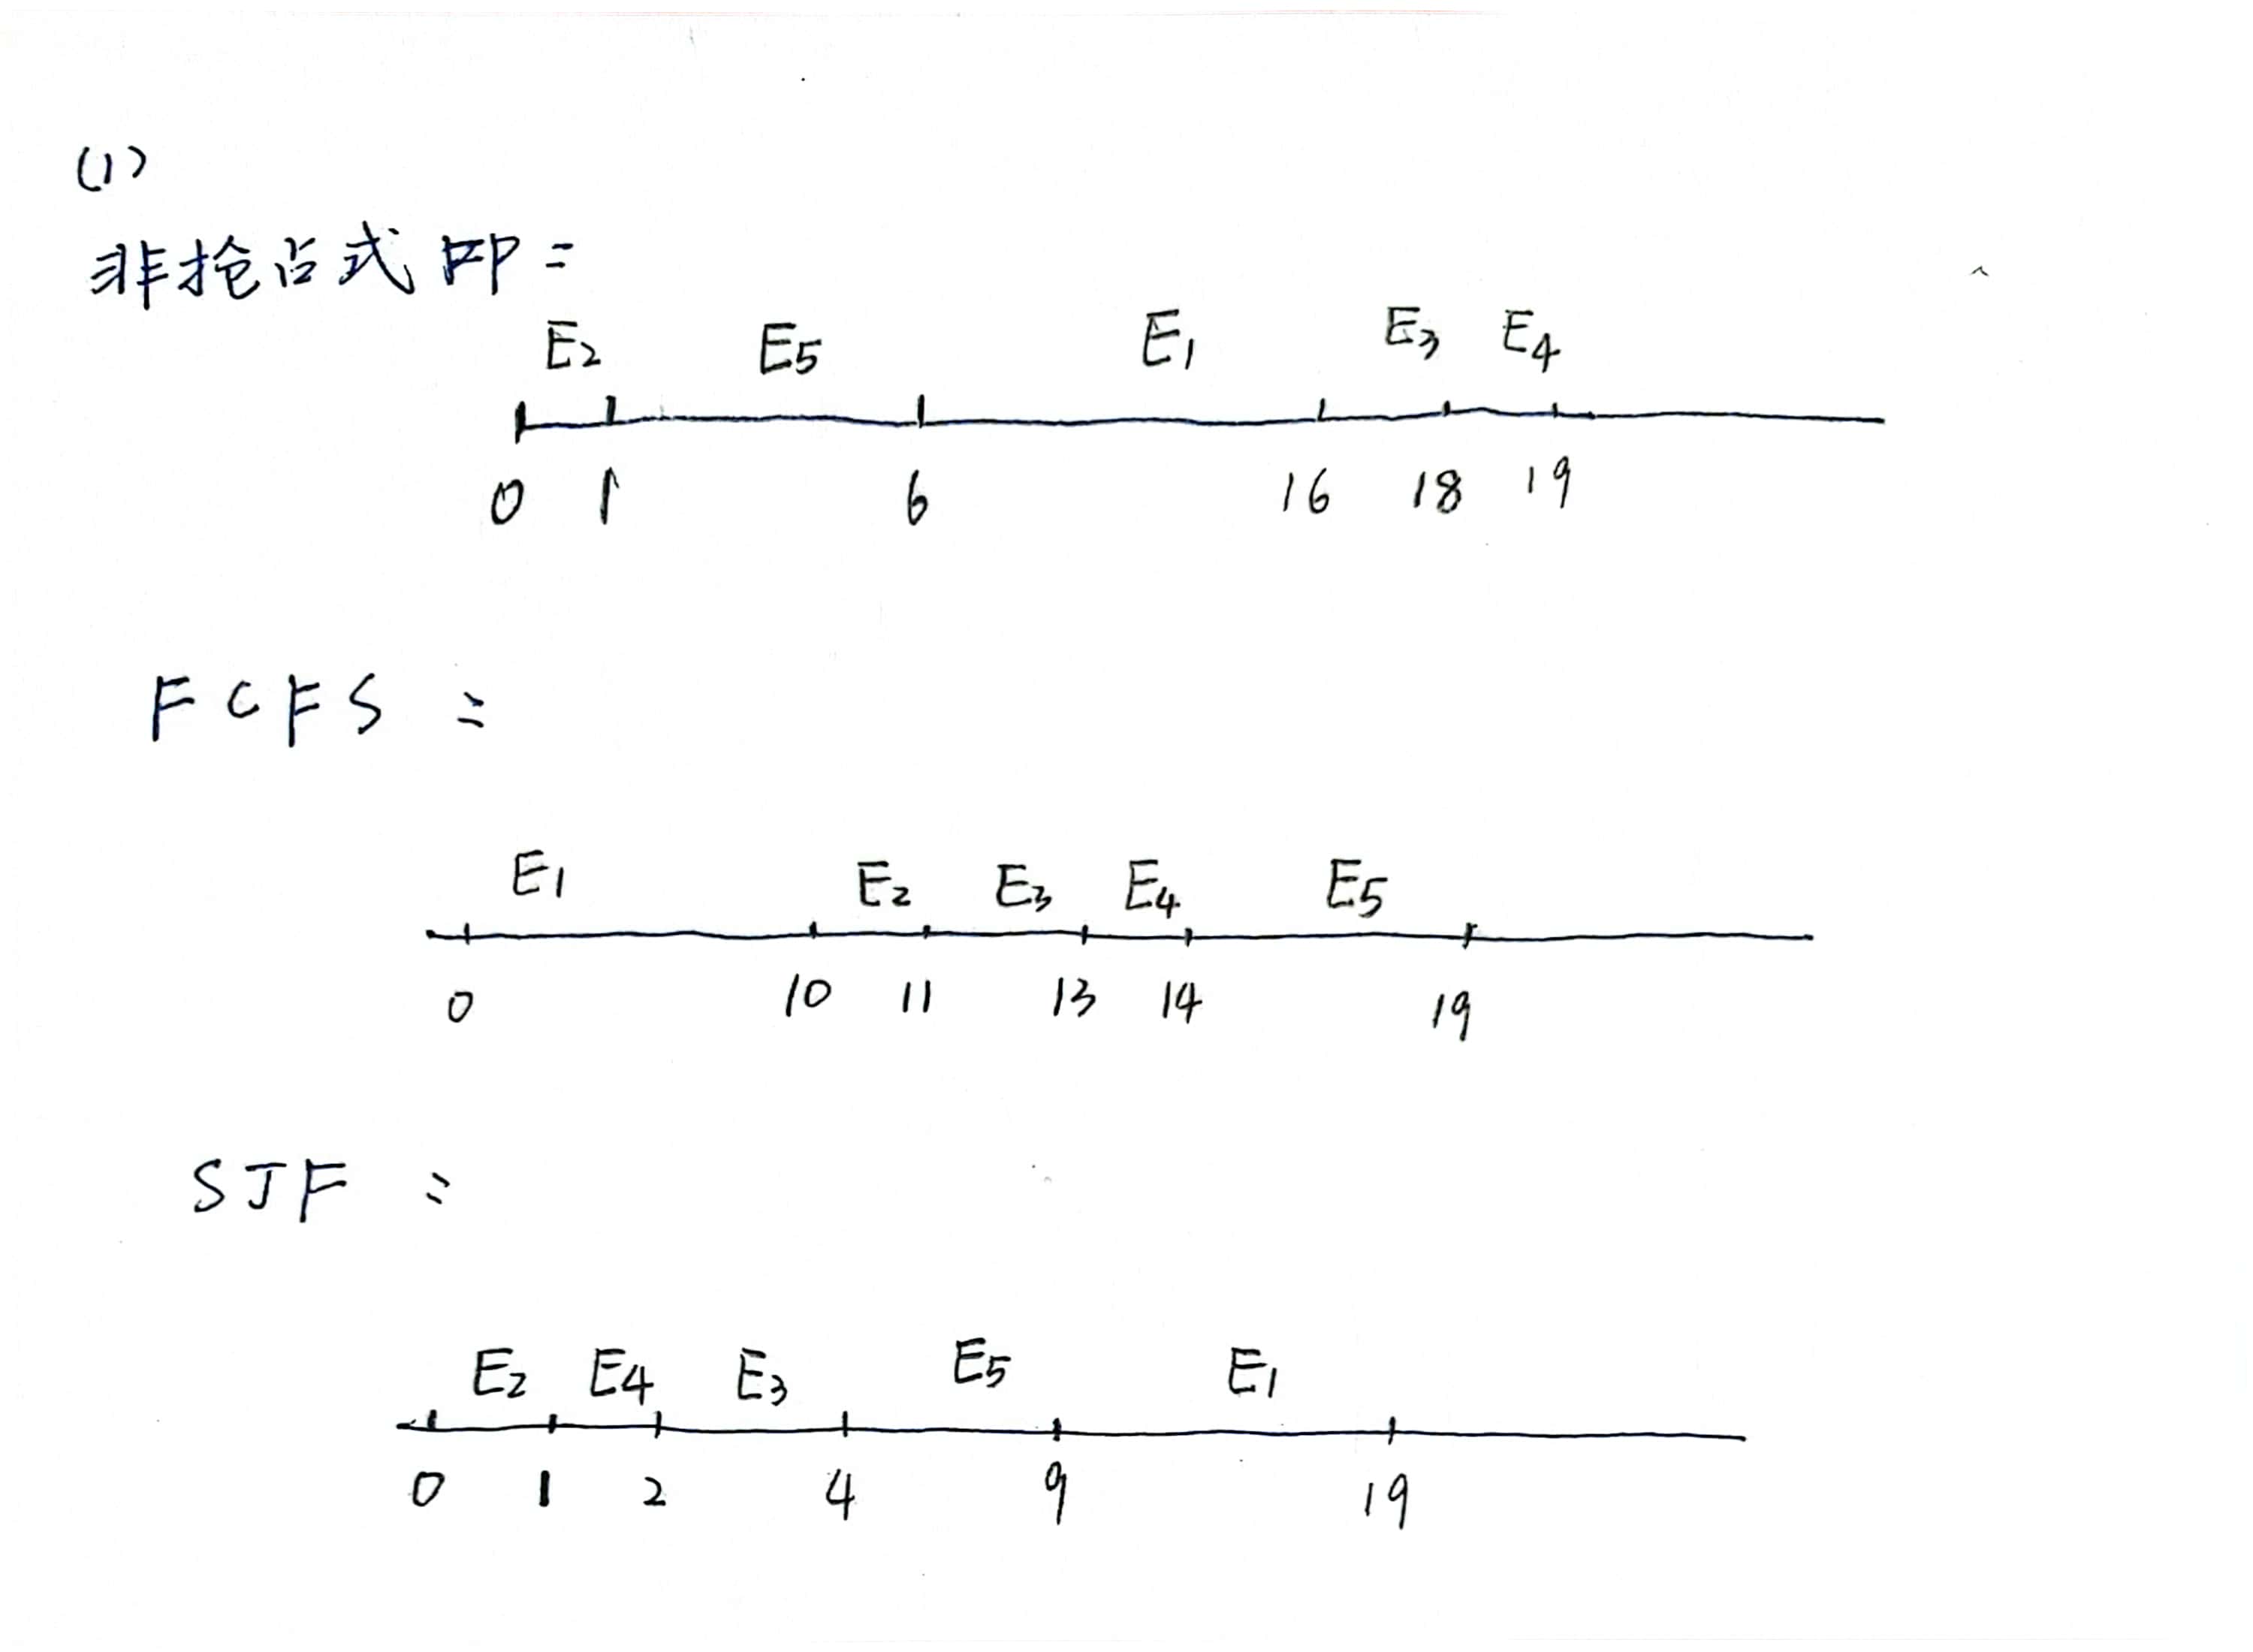 (1)
非抢占式 FP:
E2 E5 E1 E3 E4
0 1 6 16 18 19
FCFS :
E1 E2 E3 E4 E5
0 10 11 13 14 19
SJF :
E2 E4 E3 E5 E1
0 1 2 4 9 19